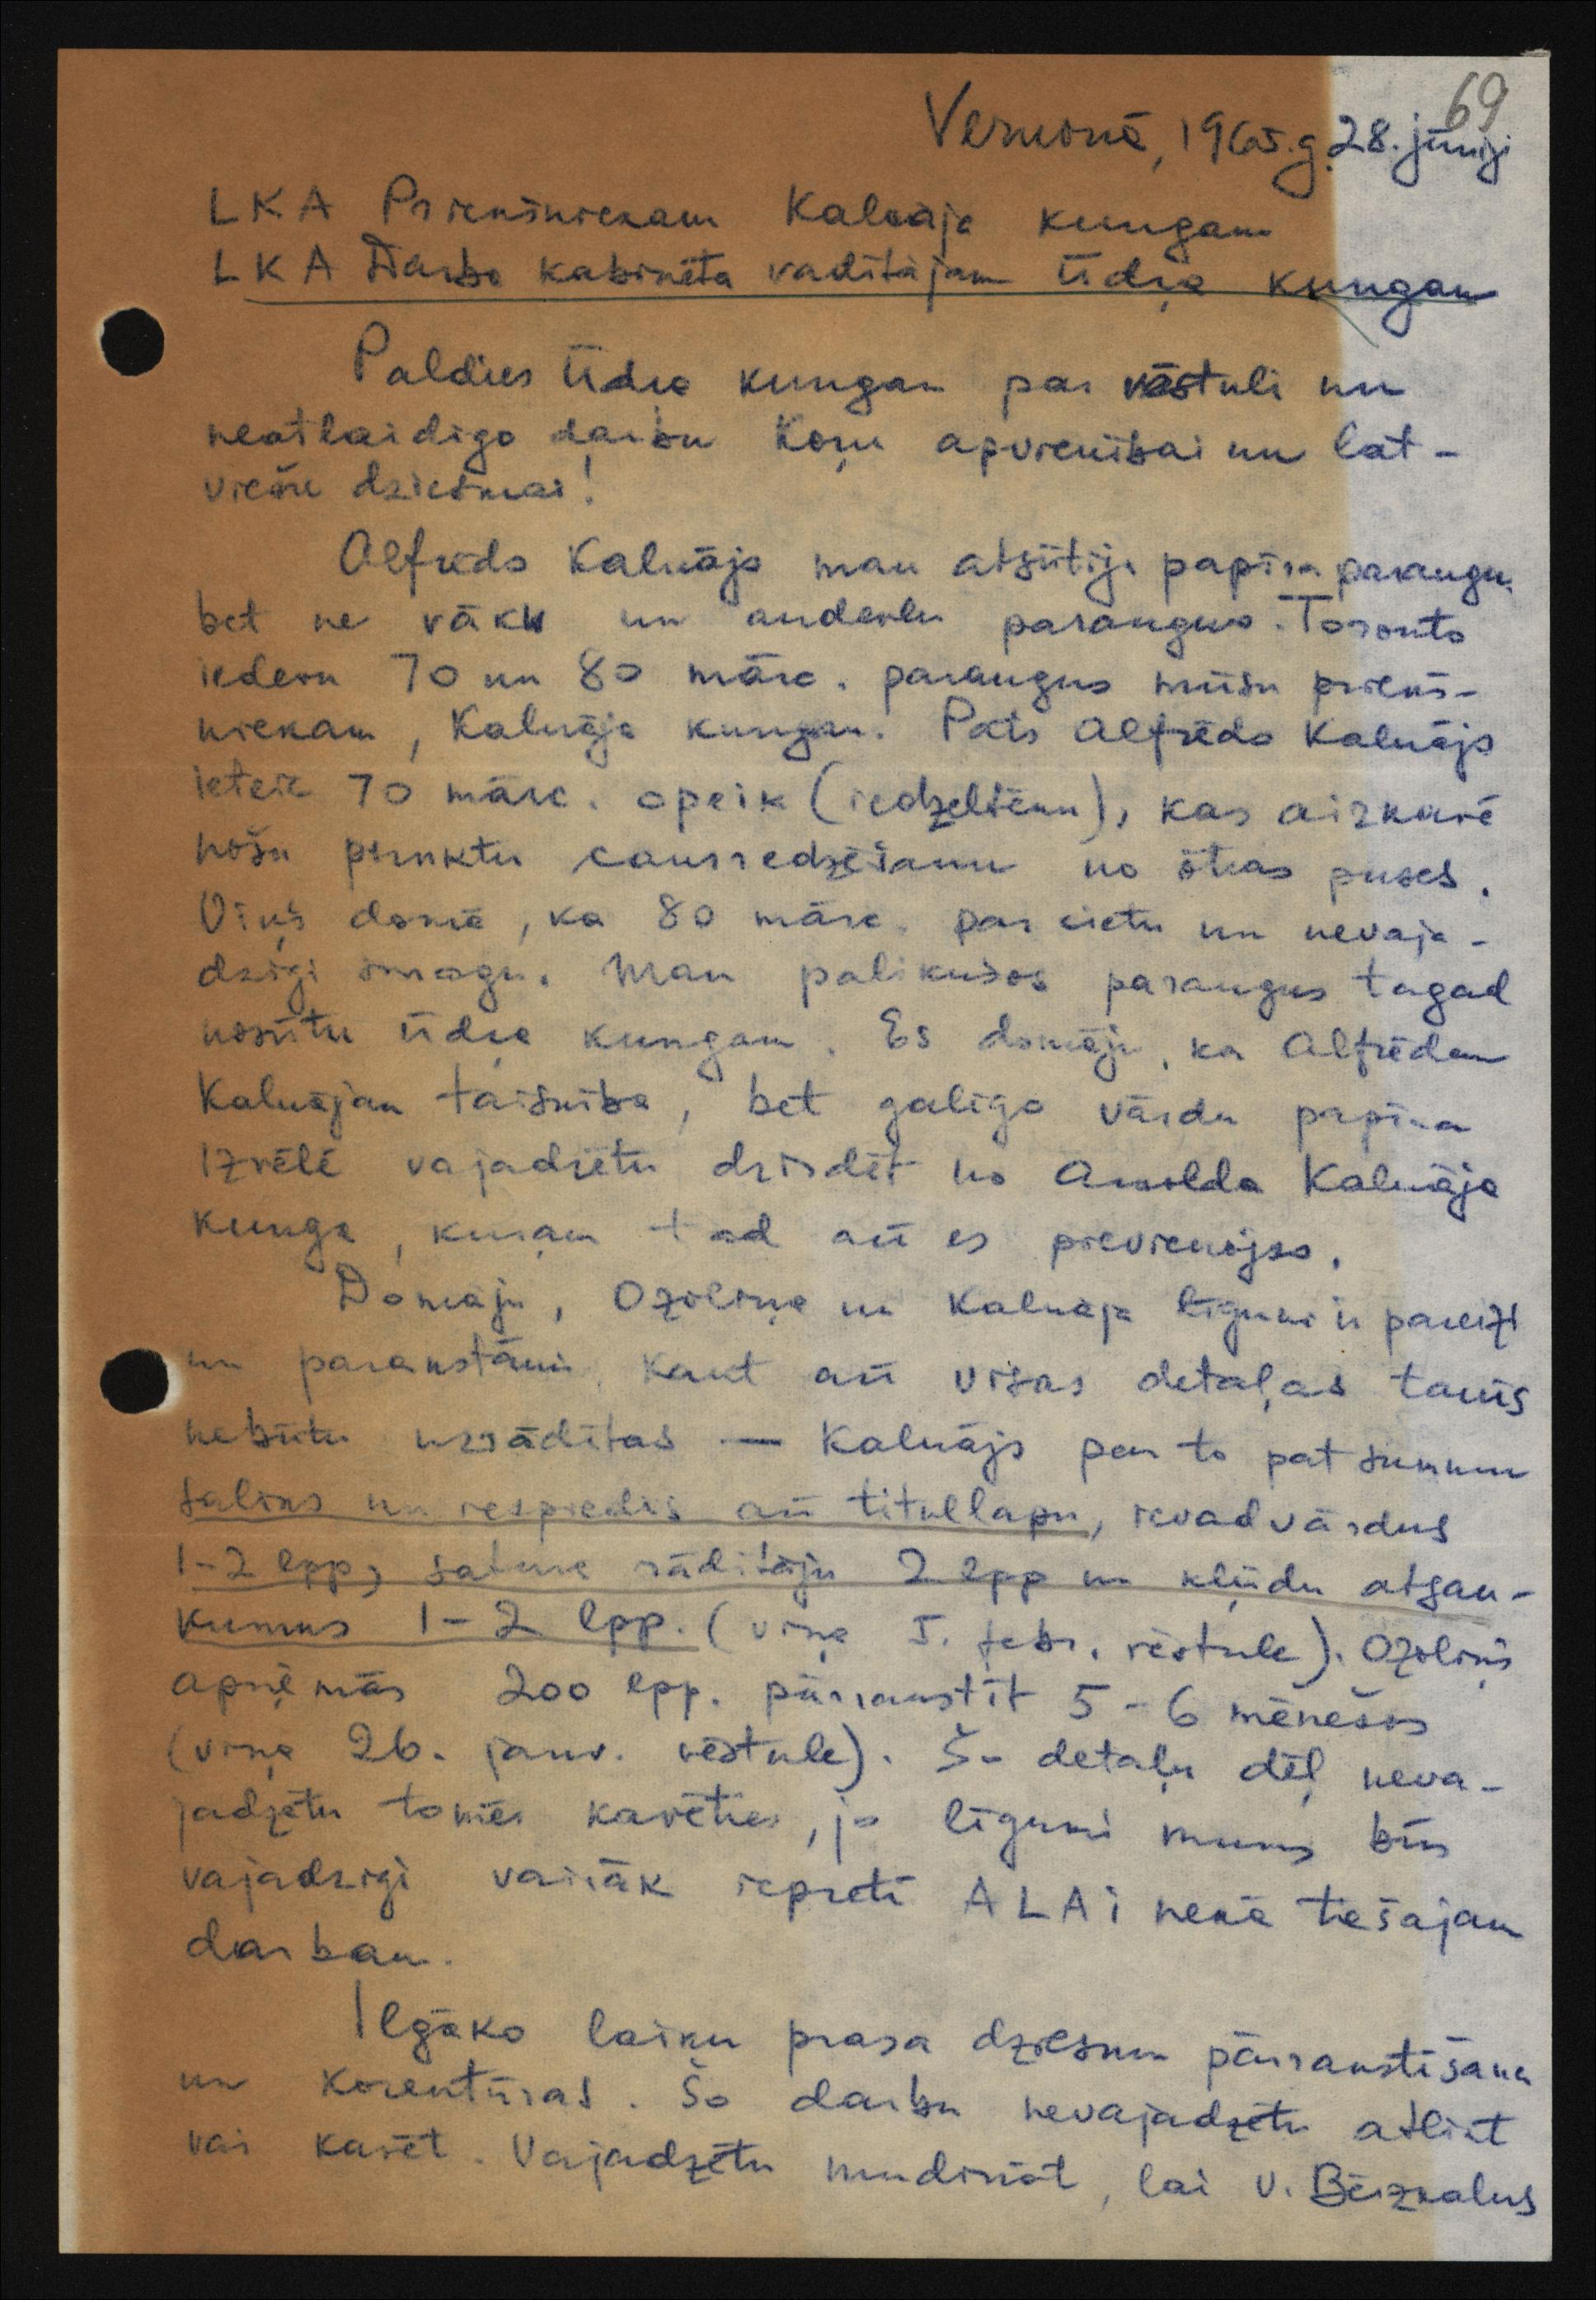 69
Vermonā, 1965.g.28.jūnijā
LKA Priekšniekam Kalnāja kungam
LKA Darba kabinēta vadītājam Ūdra kungam
Paldies Ūdra kungam par vēstuli un
neatlaidīgo darbu Koŗu apvienībai un lat-
viešu dziesmai!
Alfrēds Kalnājs man atsūtīja papīra paraugu,
bet ne vāku un auderlu paraugus. Toronto
iedevu 70 un 80 mārc. paraugus mūsu priekš-
niekam, Kalnāja kungam. Pats Alfrēds Kalnājs
ieteic 70 mārc. opeik (iedzeltēnu), kas aizkavē
nošu punktu cauredzēšanu no otras puses.
Viņš domā, ka 80 mārc. par cietu un nevaja-
dzīgi smagu. Man palikušos paraugus tagad
nosūtu Ūdra kungam. Es domāju, ka Alfrēdam
Kalnājam taisnība, bet galīgo vārdu papīra
izvēlē vajadzētu dzirdēt no Arnolda Kalnāja
kunga, kuŗam tad arī es pievienojos.
Domāju, Ozoliņa un Kalnāja līgumi ir pareizi
un parakstāmi, kaut arī visas detaļas tanīs
nebūtu uzrādītas — Kalnājs par to pat summu
saliks un iespiedīs arī titullapu, ievadvārdus
1-2 lpp, satura rādītāju 2 lpp un kļūdu atgau-
kumus 1-2 lpp. (viņa 5. febr. vēstule). Ozoliņš
apņēmās 200 lpp. pārrakstīt 5-6 mēnešos
(viņa 26. janv. vēstule). Šo detaļu dēļ neva-
jadzētu tomēr kavēties, jo līgumi mums būs
vajadzīgi vairāk iepretī ALAi nekā tiešajam
darbam.
Ilgāko laiku prasa dziesmu pārrakstīšana
un korektūras. Šo darbu nevajadzētu atlikt
vai kavēt. Vajadzētu mudināt, lai V. Bērzkalns